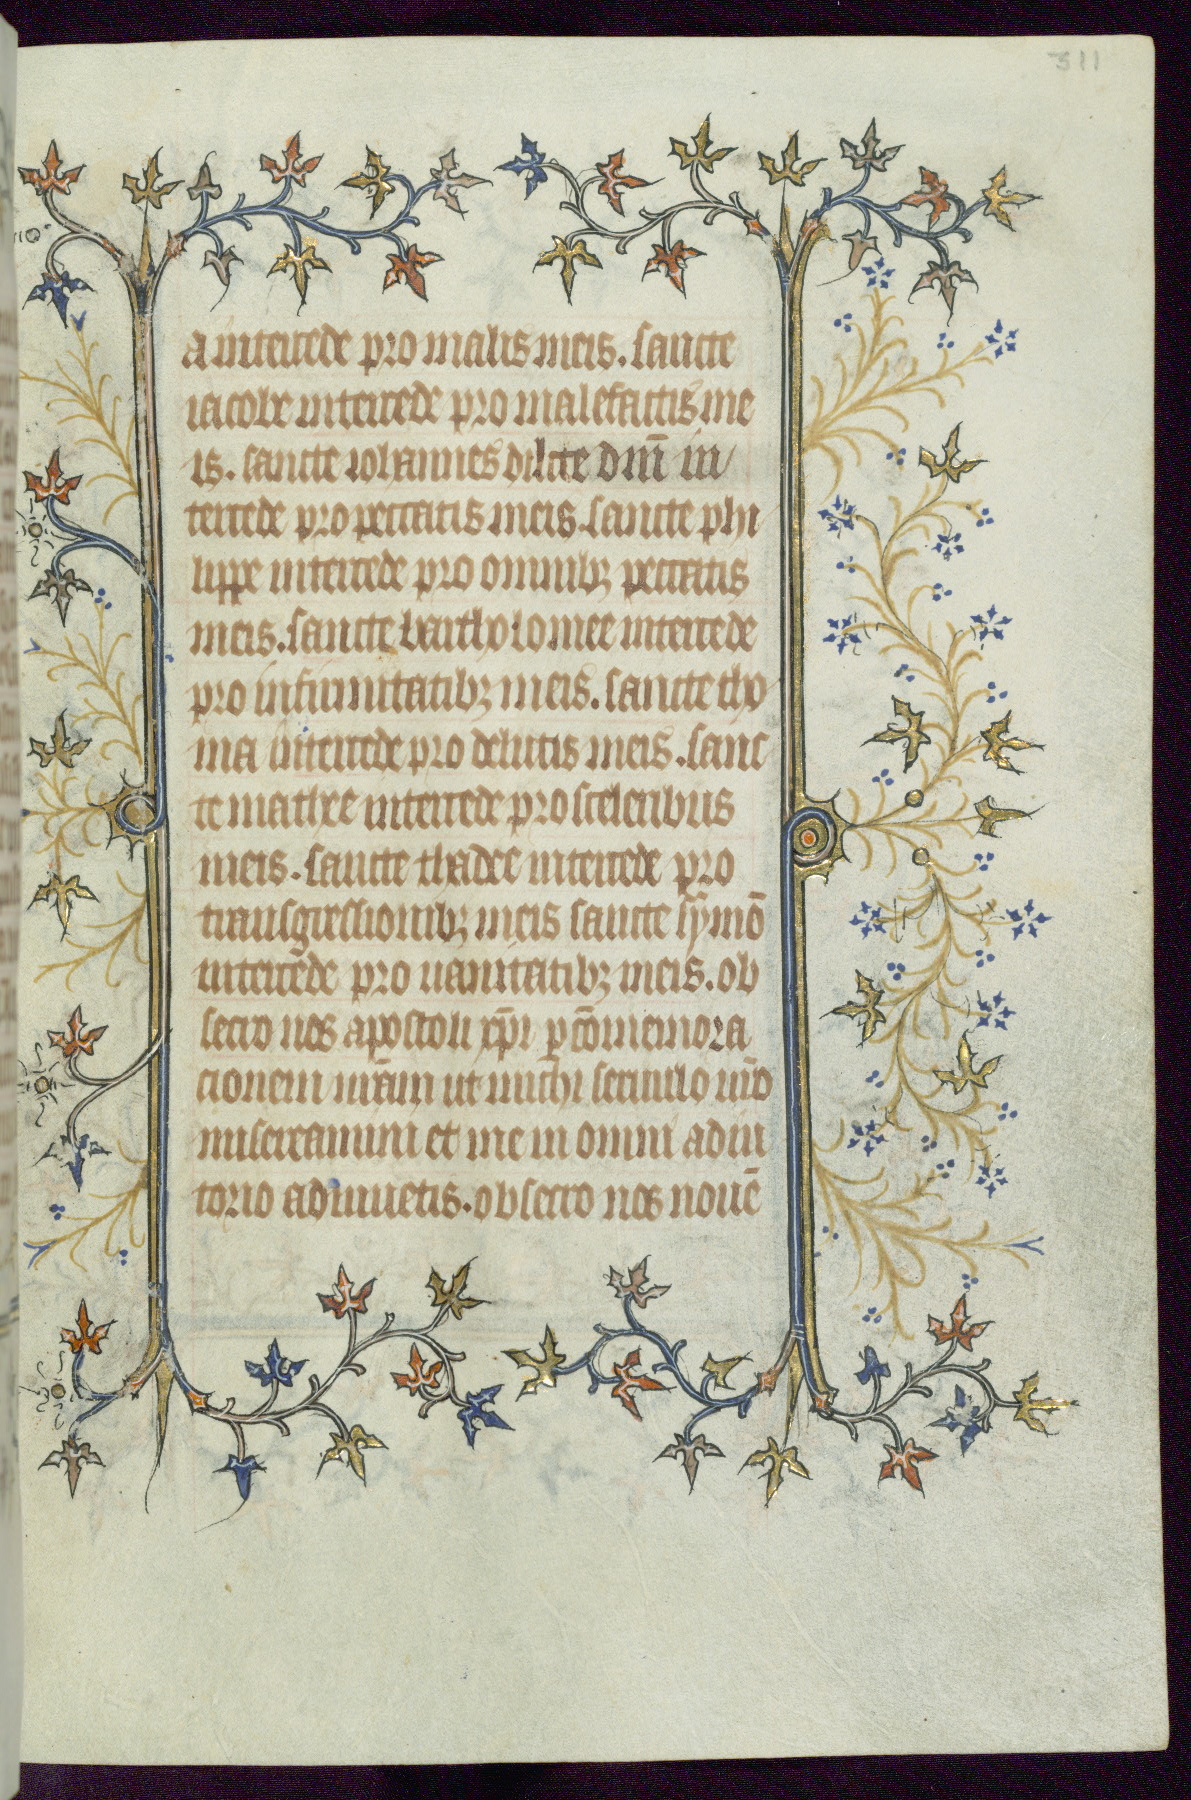 311
a intercede pro malis meis. sancte
iacobe intercede pro malefactis me
is. sancte iohannes dilcte dn̄i in
tercede pro peccatis meis. sancte phi
lippe intercede pro omnibꝫ peccatis
meis. sancte bartholomee intercede
pro infirmitatibꝫ meis. sancte tho
ma intercede pro delictis meis. sanc
te mathee intercede pro sceleribus
meis. sancte thadee intercede pro
transgressionibꝫ meis sancte symō
intercēde pro uanitatibꝫ meis. ob
secro uos apostoli xp̄i p cōmemora
cionem ur̄am ut michi seruulo ur̄o
misereamini et me in omni adiu
torio adiuuetis. obsecro uos nouē